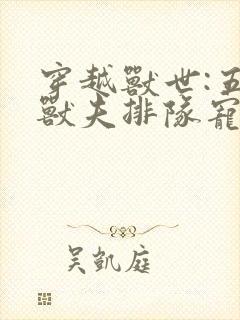 穿越獸世:五
獸夫排隊寵
吳凱庭